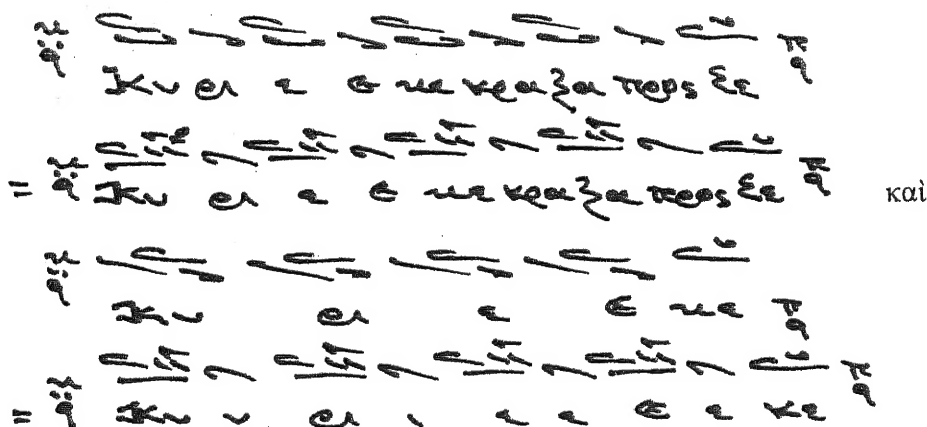 Κυ ρι ε Ε κε κραξα προς Σε
= Κυ ρι ε Ε κε κραξα προς Σε καὶ
Κυ ρι ε Ε κε
= Κυ υ ρι ι ε ε Ε ε κε